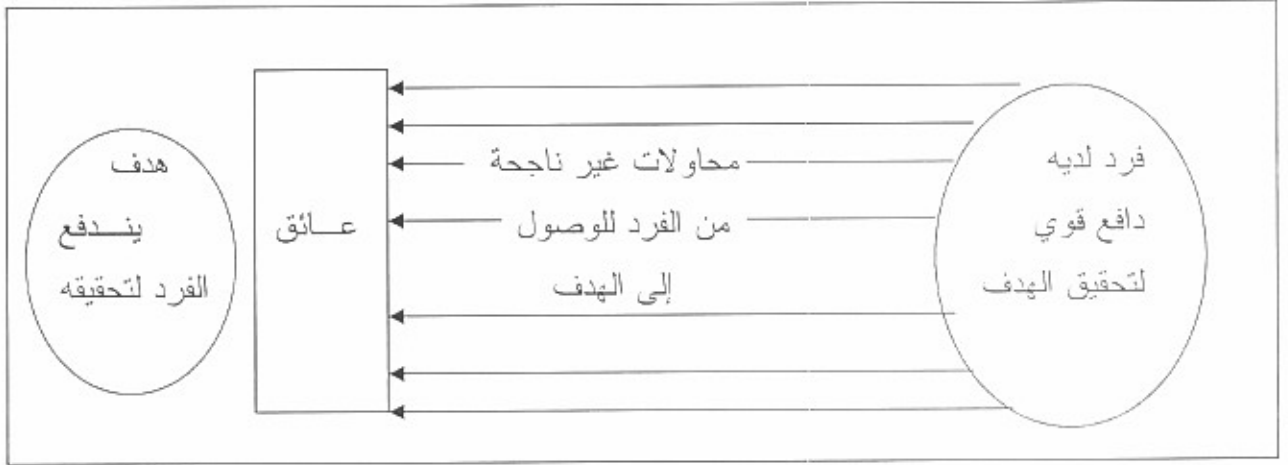 فرد لديه
دافع قوي
لتحقيق الهدف
محاولات غير ناجحة
من الفرد للوصول
إلى الهدف
عــائق
هدف
ينــدفع
الفرد لتحقيقه